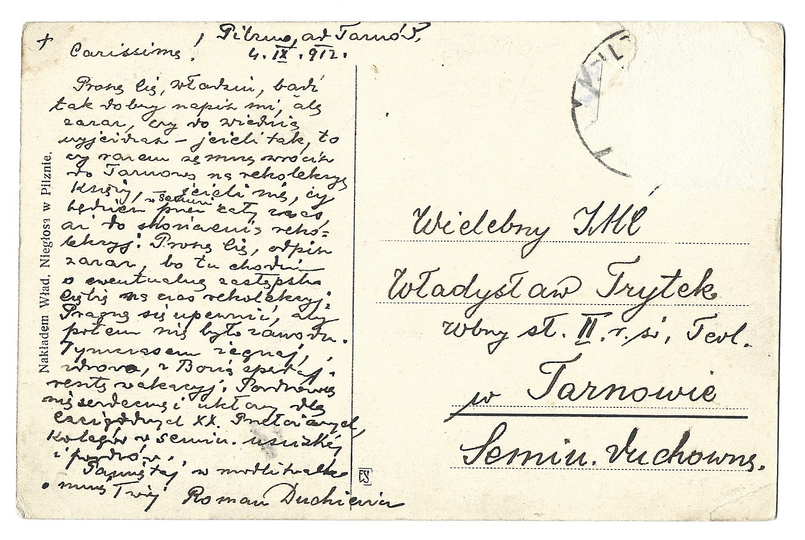 +
Carissime!
Pilzno, ad Tarnów,
4. IX. 912.
Proszę Cię, Władziu, bądź
tak dobry napisz mi, ale
zaraz, czy do Wiednia
wyjeżdżasz – jeżeli tak, to
czy razem ze mną wrócisz
do Tarnowa na rekolekcye
księży, jeżeli nie, czy
będziesz w Semin. przez cały czas,
aż do skończenia reko=
lekcyj? Proszę Cię, odpisz
zaraz, bo tu chodzi
o ewentualne zastępstwo
Ciebie na czas rekolekcyj.
Pragnę się upewnić, aby
potem nie było zawodu.
Tymczasem żegnaj,
zdrowo, z Bogiem
resztę wakacyj. Pozdrowienia
serdeczne i ukłony dla
XX. Prefektów,
kolegów w Semin. uściskaj
i pozdrów.
Pamiętaj w modlitwach
o mnie Twój Roman Duchiewicz
Nakładem Wład. Niegłosa w Pilznie.
Wielebny JMć
Władysław Trytek
sł. II. r. św. Teol.
w Tarnowie
Semin. Duchowne.